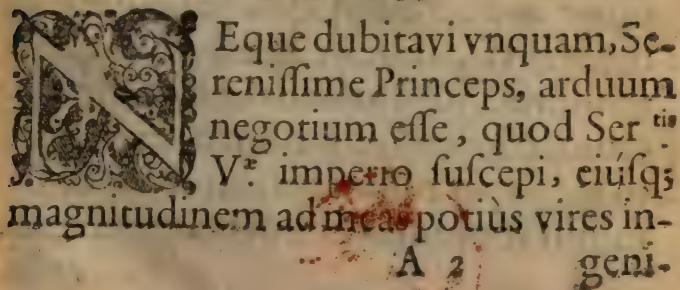 NEque dubitavi vnquam, Se-
reniſſime Princeps, arduum
negotium eſſe, quod Ser.tis
Vr. imperio ſuſcepi, eiúſq;
magnitudinem ad meas potiùs vires in-
A 2 geni-